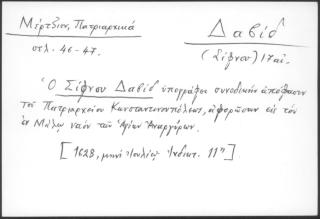 Μέρτζιου, Πατριαρχικά
σελ. 46-47.
Δαβίδ
(Σίφνου) 17 αἰ.
Ὁ Σίφνου Δαβίδ ὑπογράφει συνοδικήν ἀπόφασιν
τοῦ Πατριαρχείου Κωνσταντινουπόλεως, ἀφορῶσαν εἰς τόν
ἐν ναόν τῶν Ἁγίων Ἀναργύρων.
[1628, μηνί Ἰουλίῳ Ἰνδικτ. 11ης]